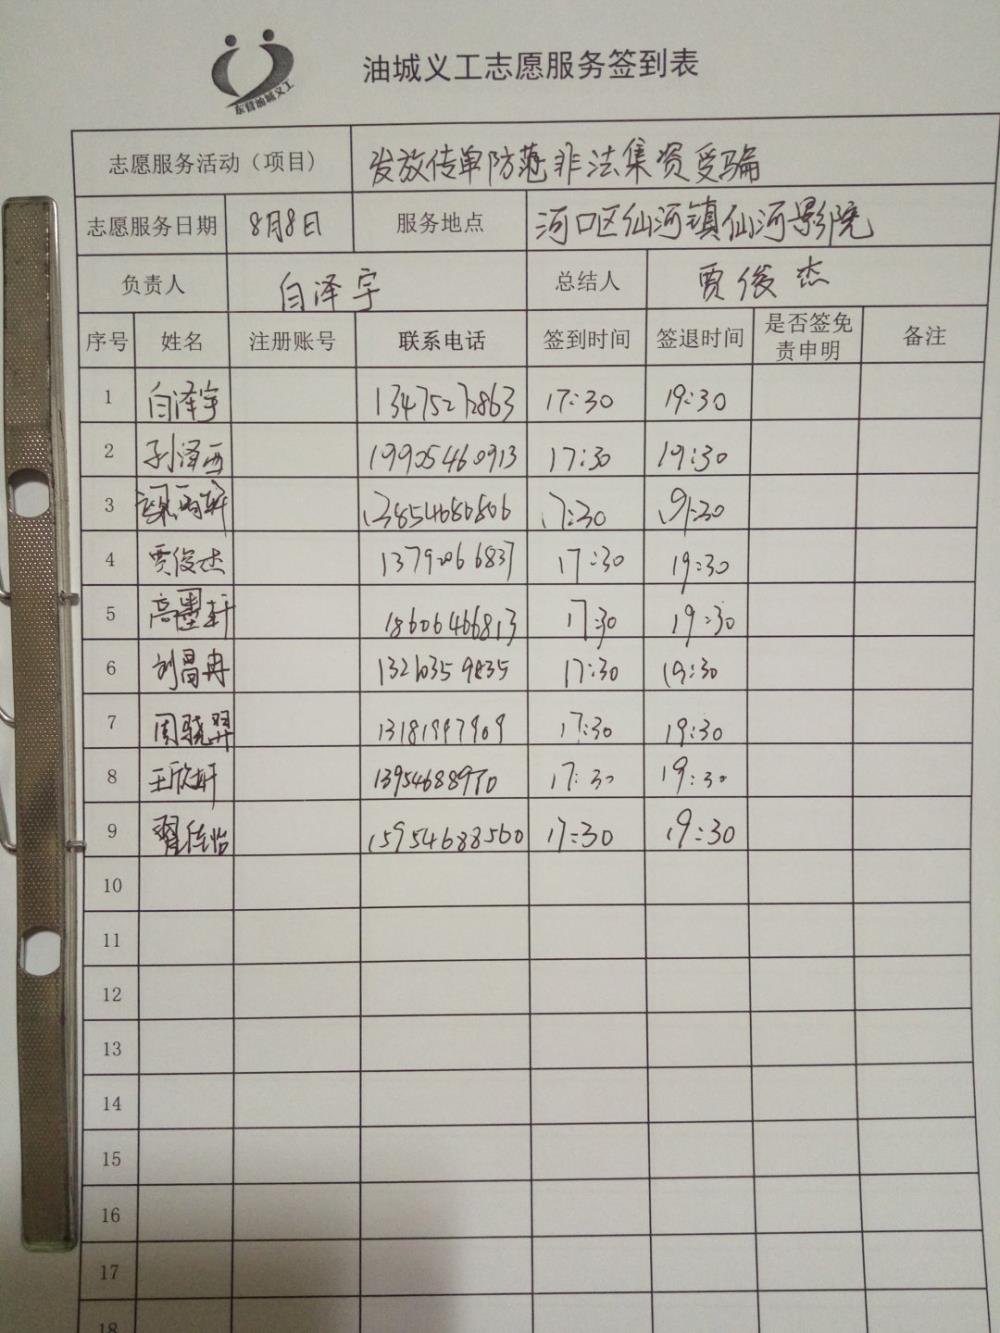 东营油城义工
油城义工志愿服务签到表
志愿服务活动（项目） 发放传单防范非法集资受骗
志愿服务日期 8月8日 服务地点 河口区仙河镇仙河影院
负责人 白泽宇 总结人 贾俊杰
序号 姓名 注册账号 联系电话 签到时间 签退时间 是否签免责申明 备注
1 白泽宇 17:30 19:30
2 孙泽西 19905460913 17:30 19:30
3 13854686806 17:30 19:30
4 贾俊杰 13792066837 17:30 19:30
5 高墨轩 18606466813 17:30 19:30
6 刘昌冉 17:30 19:30
7 周骁羿 17:30 19:30
8 王欣妍 17:30 19:30
9 翟佳怡 15954688560 17:30 19:30
10
11
12
13
14
15
16
17
18